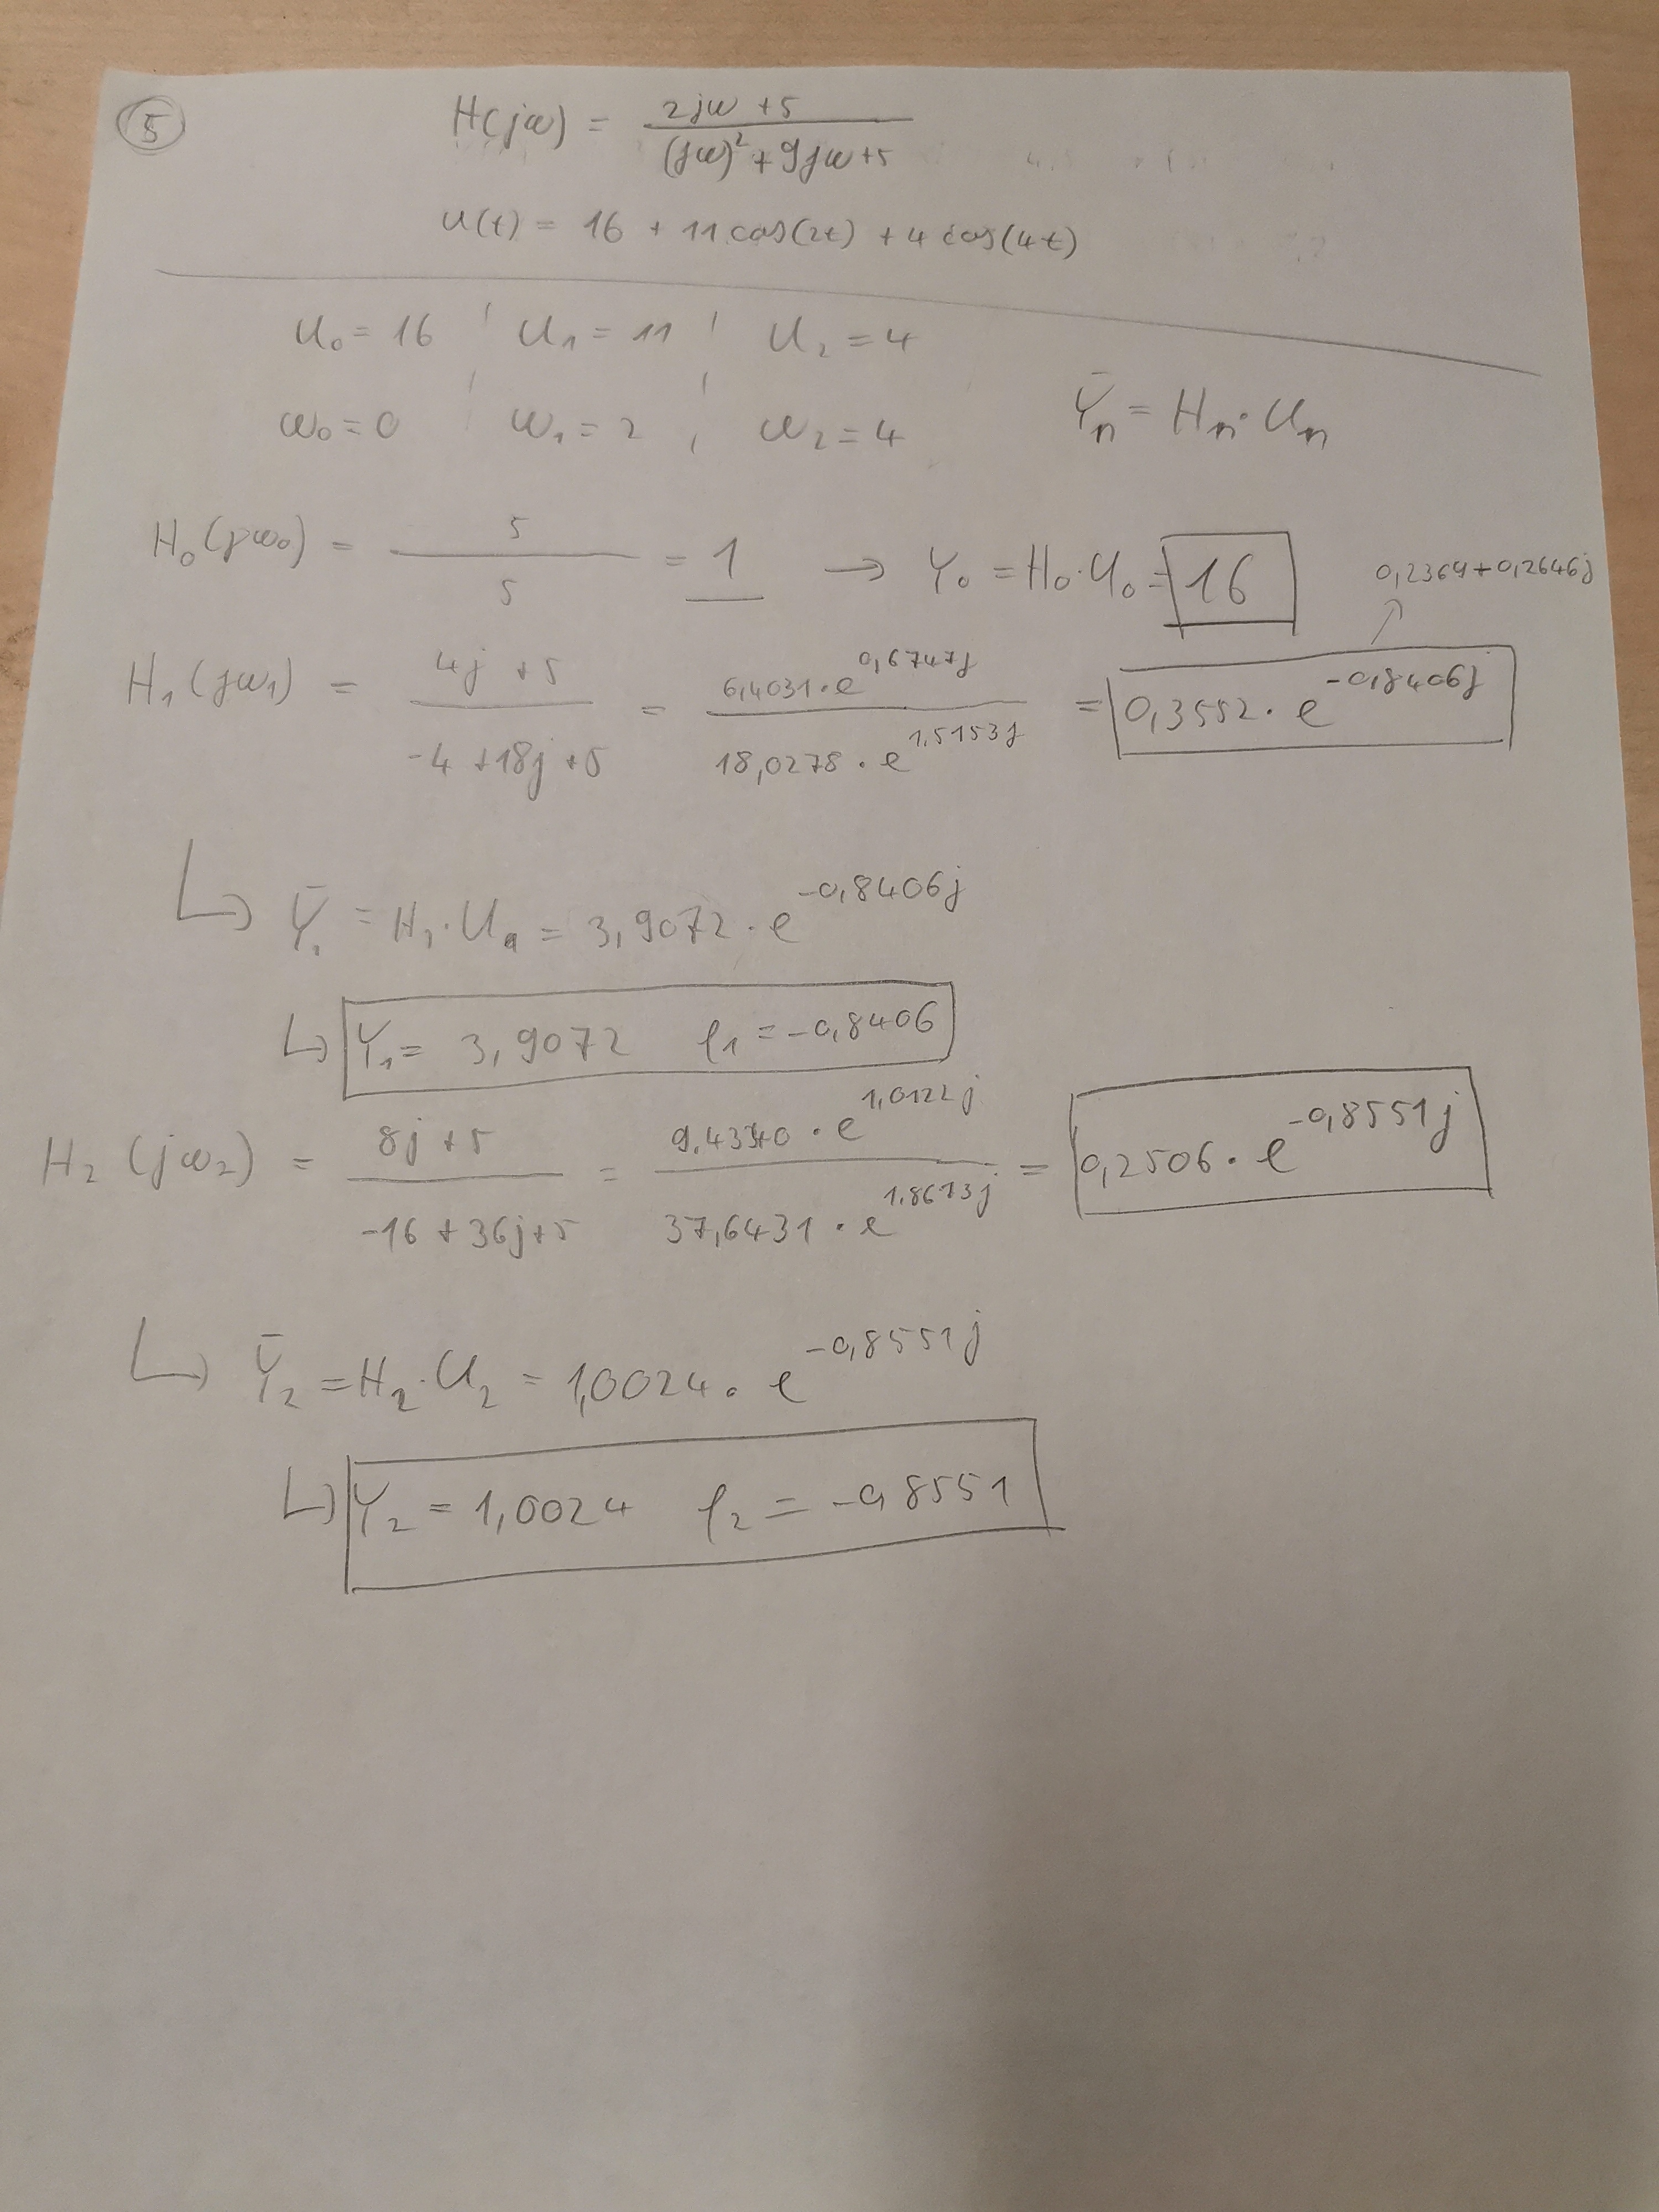 5
H(jω) = (2jω + 5) / ((jω)² + 9jω + 5)
u(t) = 16 + 11 cos(2t) + 4 cos(4t)
U₀ = 16 ¦ U₁ = 11 ¦ U₂ = 4
ω₀ = 0 ¦ ω₁ = 2 ¦ ω₂ = 4
Ȳₙ = Hₙ · Uₙ
H₀(jω₀) = 5 / 5 = 1 → Y₀ = H₀ · U₀ = 16
0,2369 + 0,2646j
H₁(jω₁) = (4j + 5) / (-4 + 18j + 5) = (6,4031 · e^(0,6747j)) / (18,0278 · e^(1,5153j)) = 0,3552 · e^(-0,8406j)
↳ Ȳ₁ = H₁ · U₁ = 3,9072 · e^(-0,8406j)
↳ Y₁ = 3,9072 φ₁ = -0,8406
H₂(jω₂) = (8j + 5) / (-16 + 36j + 5) = (9,4340 · e^(1,0122j)) / (37,6431 · e^(1,8673j)) = 0,2506 · e^(-0,8551j)
↳ Ȳ₂ = H₂ · U₂ = 1,0024 · e^(-0,8551j)
↳ Y₂ = 1,0024 φ₂ = -0,8551